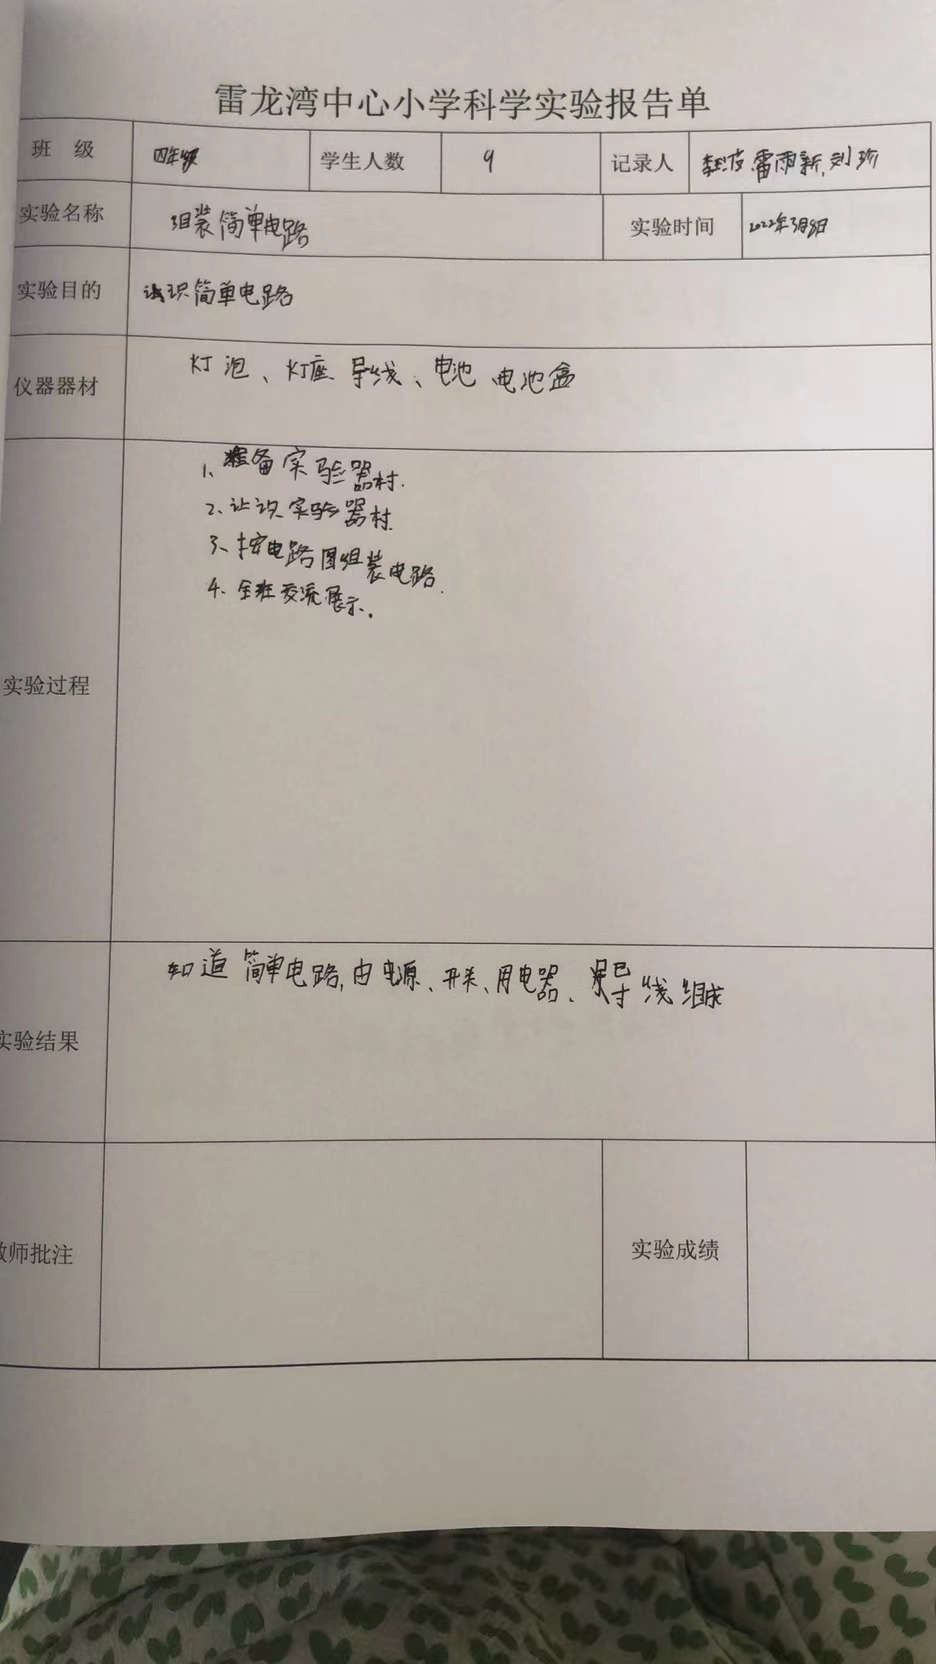 雷龙湾中心小学科学实验报告单
班 级 四年级 学生人数 9 记录人 雷雨新、刘
实验名称 组装简单电路 实验时间 2022年3月9日
实验目的 认识简单电路
仪器器材 灯泡、灯座 导线、电池 电池盒
实验过程
1、准备实验器材.
2、认识实验器材
3、按电路图组装电路.
4、全班交流展示.
实验结果 知道简单电路,由电源、开关、用电器、导线组成
教师批注 实验成绩